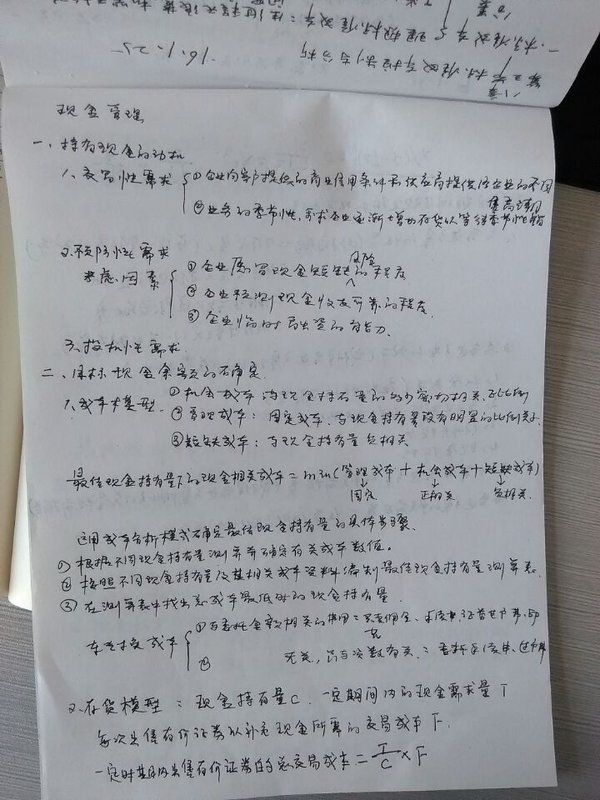 16.1.25
现金管理
一、持有现金的动机
1、交易性需求 ①企业向客户提供的商业信用条件和供应商提供给企业的不同
②业务的季节性,要求企业逐渐增加存货以等待季节性销售高潮
2、预防性需求
考虑因素 ①企业愿冒现金短缺风险的程度
②企业预测现金收支可靠的程度
③企业临时融资的能力
3、投机性需求
二、目标现金余额的确定
1、成本模型 ①机会成本 与现金持有量的多少密切相关,正比例
②管理成本:固定成本、与现金持有量没有明显的比例关系
③短缺成本:与现金持有量负相关
最佳现金持有量下的现金相关成本=min(管理成本+机会成本+短缺成本)
固定 正相关 负相关
运用成本分析模式确定最佳现金持有量的具体步骤
①根据不同现金持有量测算并确定有关成本数值。
②按照不同现金持有量及其相关成本资料编制最佳现金持有量测算表
③在测算表中找出总成本最低时的现金持有量
①与委托金额相关的费用:
②无关,只与次数有关:
2、存货模型:现金持有量C,一定期间内的现金需求量T
每次出售有价证券以补充现金所需的交易成本F.
一定时期内出售有价证券的总交易成本=T/C×F